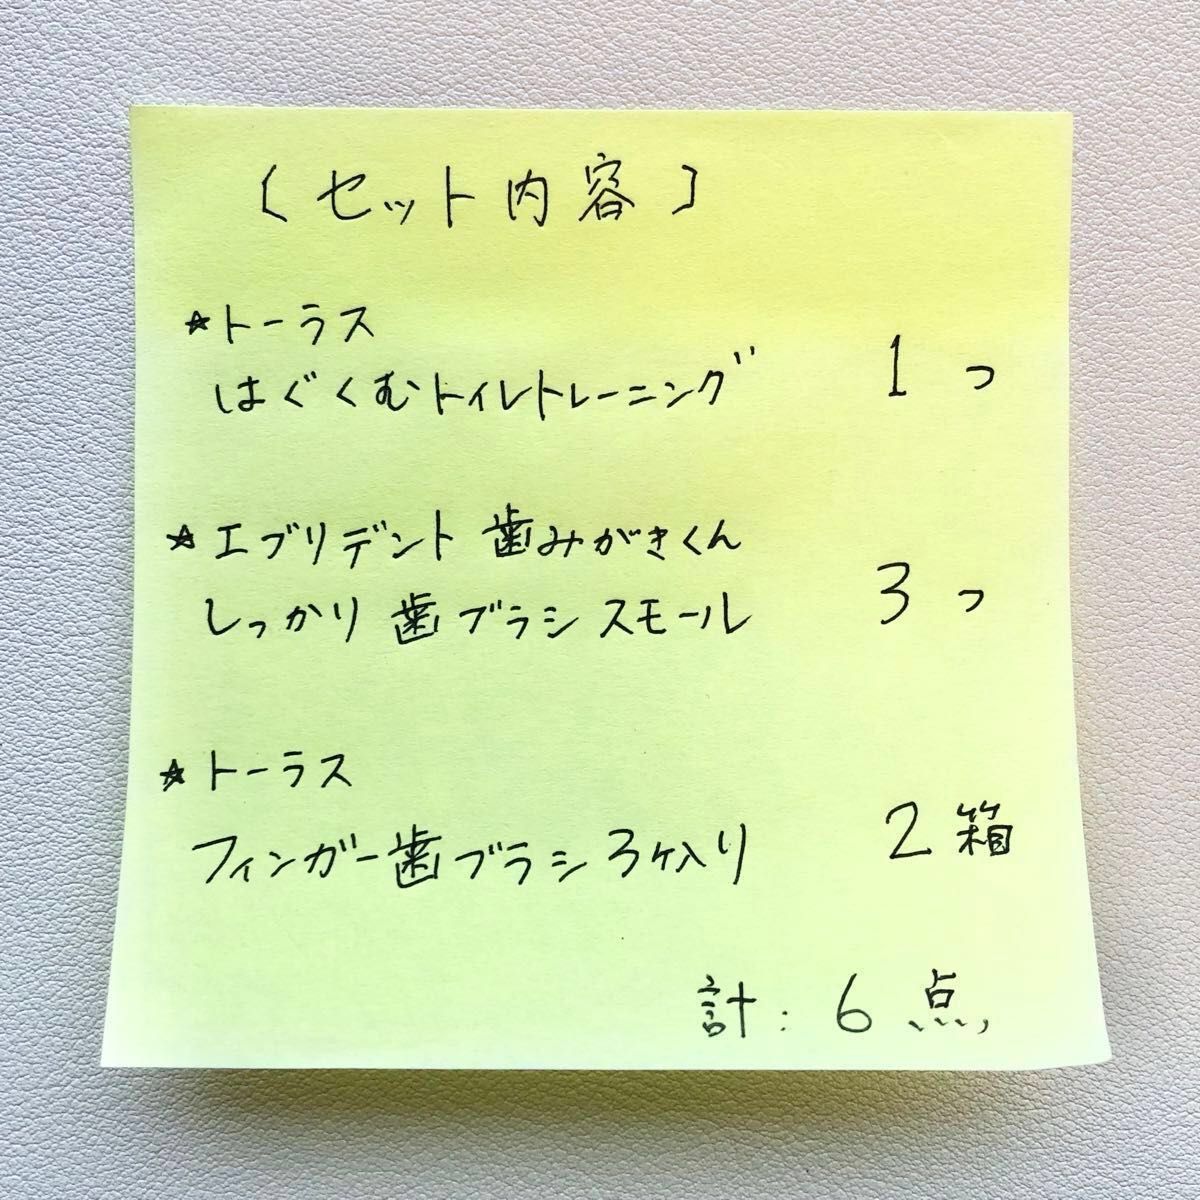 〔セット内容〕
☆トーラス
はぐくむトイレトレーニング 1つ
☆エブリデント 歯みがきくん
しっかり歯ブラシ スモール 3つ
☆トーラス
フィンガー歯ブラシ3ヶ入り 2箱
計:6点